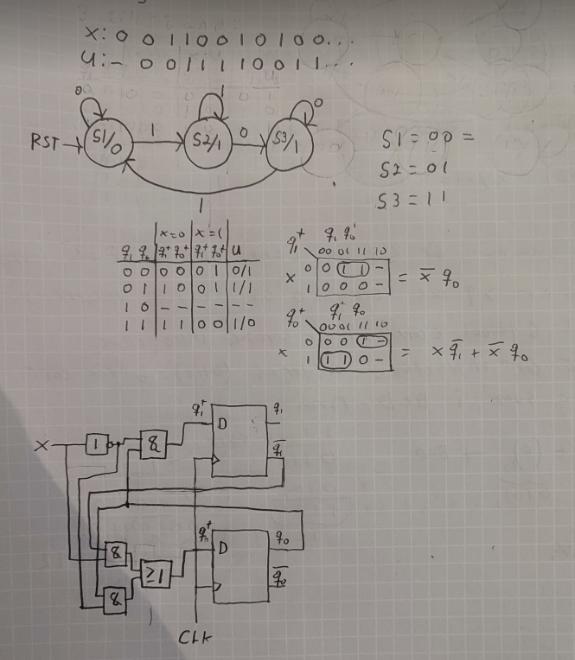 x: 0 0 1 1 0 0 1 0 1 0 0...
u: - 0 0 1 1 1 1 0 0 1 1...
0 1 0
RST S1/0 1 S2/1 0 S3/1
1
S1 = 00 =
S2 = 01
S3 = 11
x=0 x=1
q₁ q₀ q₁⁺ q₀⁺ q₁⁺ q₀⁺ u
0 0 0 0 0 1 0/1
0 1 1 0 0 1 1/1
1 0 - - - - -
1 1 1 1 0 0 1/0
q₁⁺ q₁ q₀
00 01 11 10
x 0 0 1 1 -
1 0 0 0 - = x̅ q₀
q₀⁺ q₁ q₀
00 01 11 10
0 0 0 1 -
x 1 1 1 0 - = x q̅₁ + x̅ q₀
q₁⁺ q₁
X 1 & D q̅₁
q₀⁺ q₀
& D
≥1
& q̅₀
CLK